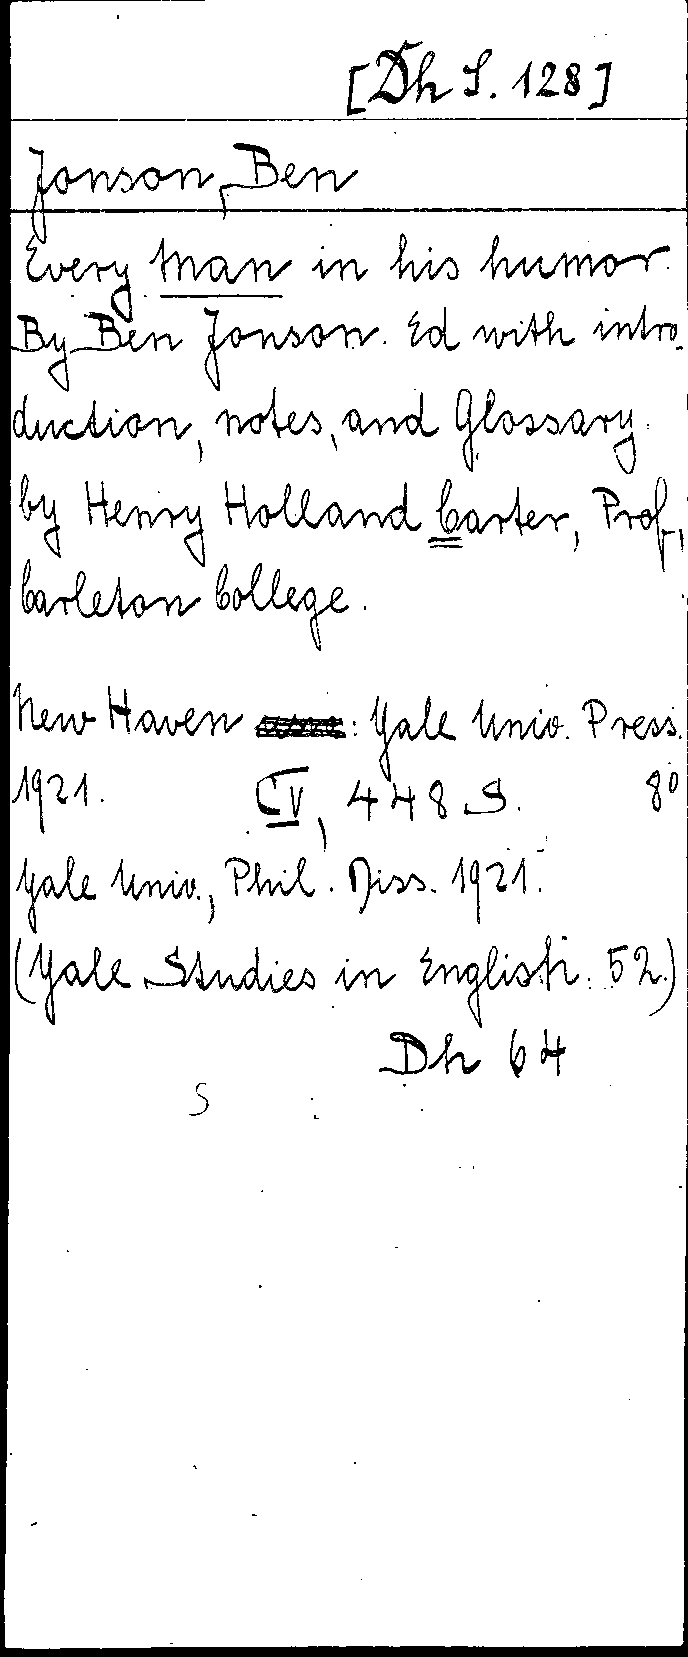 [Dh S. 128]
Jonson, Ben
Every man in his humor.
By Ben Jonson. Ed with intro-
duction, notes, and Glossary
by Henry Holland Carter, Prof.,
Carleton College.
New Haven : Yale Univ. Press.
1921. CV, 448 S. 8°
Yale Univ., Phil. Diss. 1921.
(Yale Studies in English. 52.)
Dh 64
S